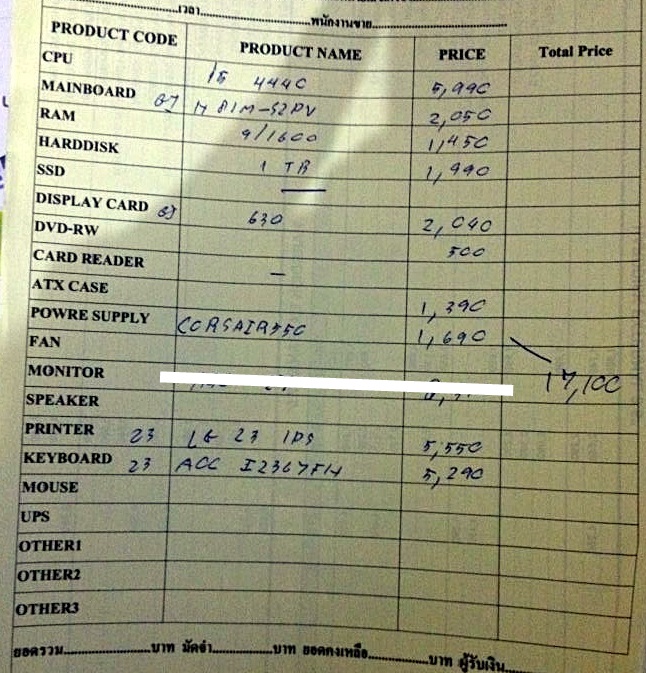 เวลา..............................พนักงานขาย..............................
PRODUCT CODE PRODUCT NAME PRICE Total Price
CPU I5 4440 5,990
MAINBOARD H81M-S2PV 2,050
RAM 1600 1,450
HARDDISK 1 TB 1,990
SSD —
DISPLAY CARD 630 2,040
DVD-RW 500
CARD READER —
ATX CASE 1,390
POWRE SUPPLY CORSAIR 550 1,690
FAN 17,100
MONITOR
SPEAKER
PRINTER 23 LG 23 IPS 5,550
KEYBOARD 23 I2367FH 5,290
MOUSE
UPS
OTHER1
OTHER2
OTHER3
ยอดรวม....................บาท มัดจำ....................บาท ยอดคงเหลือ....................บาท ผู้รับเงิน....................